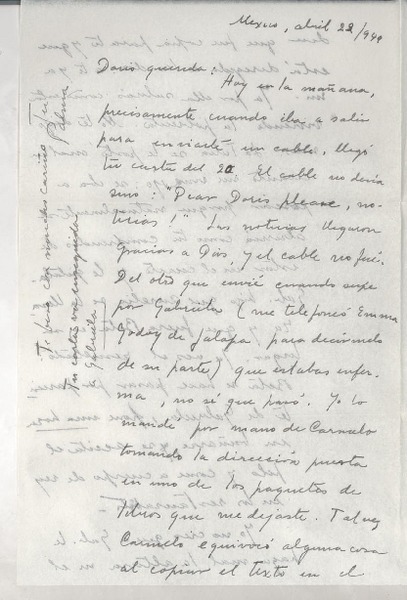 Mexico, abril 22/949
Doris querida: Hoy en la mañana,
precisamente cuando iba a salir
para enviarte un cable, llegó
tu carta del 20. El cable no decía
sino: "Dear Doris please, no-
ticias!" Las noticias llegaron
gracias a Dios, y el cable no fué.
Del otro que envié cuando supe
por Gabriela (me telefoneó Emma
Godoy de Jalapa para decírmelo
de su parte) que estabas enfer-
ma, no sé que pasó. Yo lo
mandé por mano de Carmelo
tomando la dirección puesta
en uno de los paquetes de
libros que me dejaste. Tal vez
Carmelo equivocó alguna cosa
al copiar el texto en el
Te besa con mucho cariño tu
Palma
Tu carta va
Gabriela